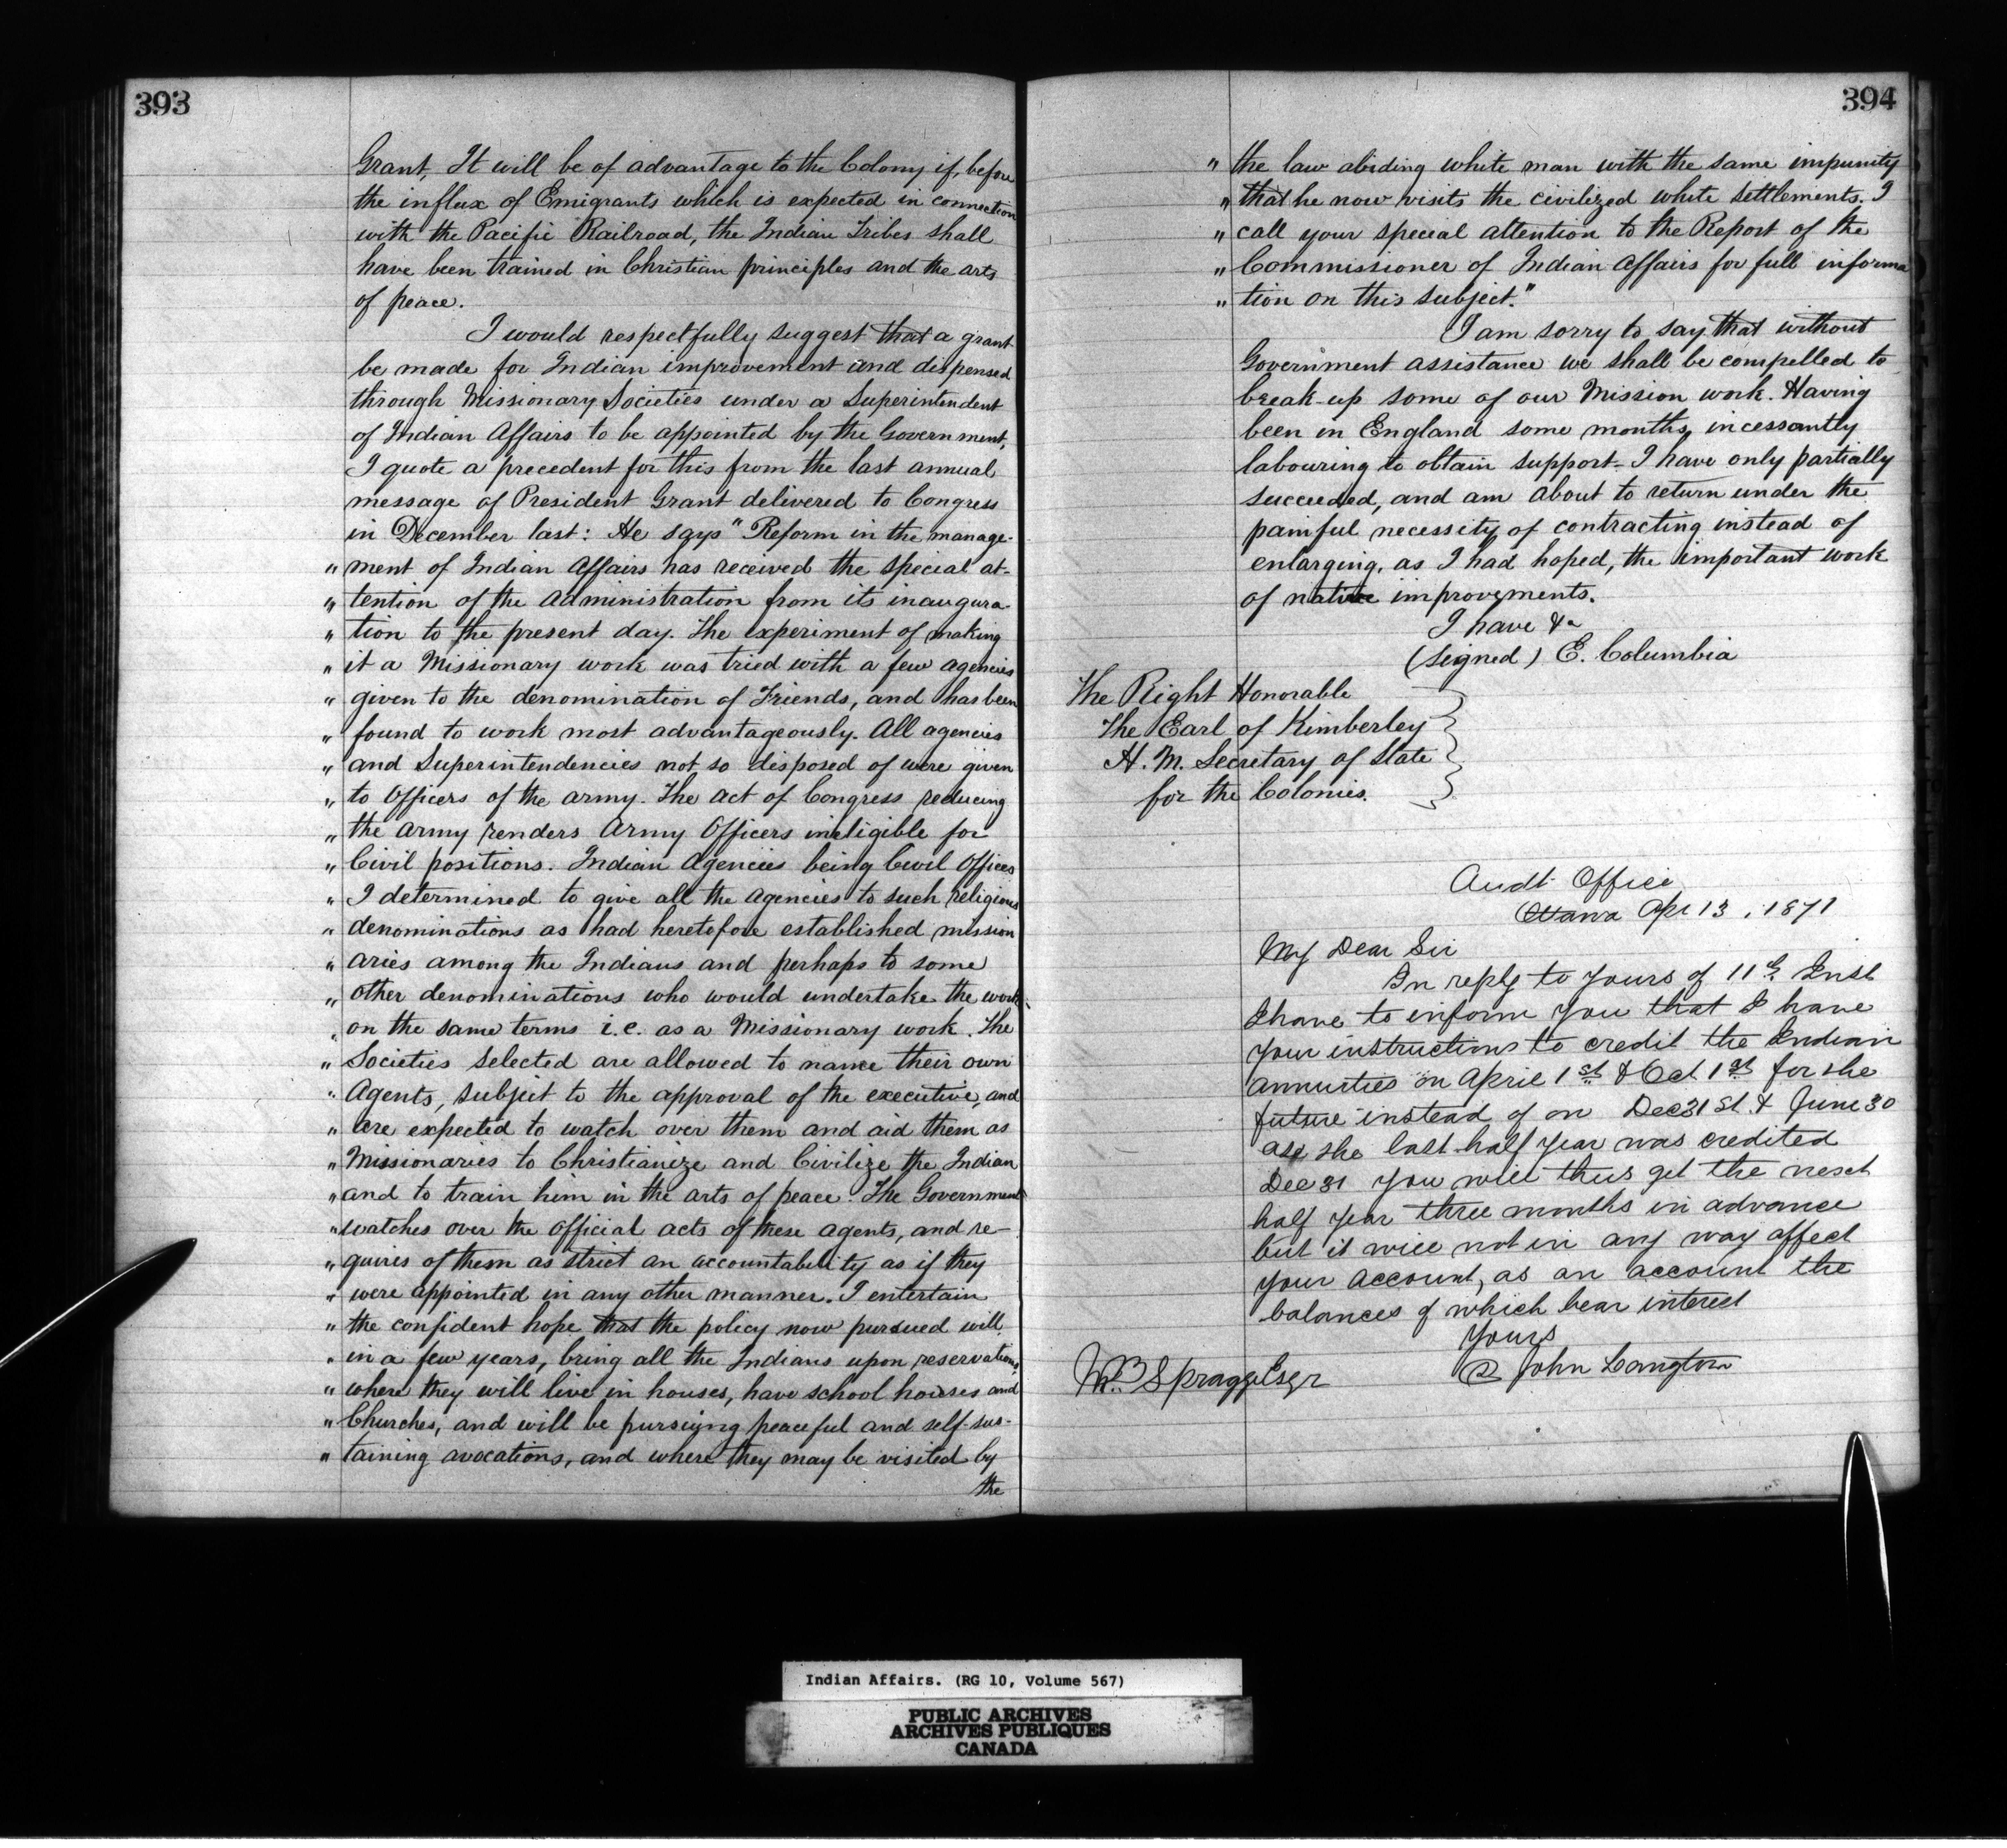 393
Grant, It will be of advantage to the Colony if, before
the influx of Emigrants which is expected in connection
with the Pacific Railroad, the Indian Tribes shall
have been trained in Christian principles and the arts
of peace.
I would respectfully suggest that a grant
be made for Indian improvement and dispensed
through Missionary Societies under a Superintendent
of Indian Affairs to be appointed by the Government,
I quote a precedent for this from the last annual
message of President Grant delivered to Congress
in December last: He says "Reform in the manage-
" ment of Indian Affairs has received the special at-
" tention of the Administration from its inaugura-
" tion to the present day. The experiment of making
" it a Missionary work was tried with a few agencies
" given to the denomination of Friends, and has been
" found to work most advantageously. All agencies
" and Superintendencies not so disposed of were given
" to Officers of the army. The act of Congress reducing
" the army renders Army Officers ineligible for
" Civil positions. Indian Agencies being Civil Offices
" I determined to give all the agencies to such religious
" denominations as had heretofore established mission
" aries among the Indians and perhaps to some
" other denominations who would undertake the work
" on the same terms i.e. as a Missionary work. The
" Societies selected are allowed to name their own
" Agents, subject to the approval of the executive, and
" are expected to watch over them and aid them as
" Missionaries to Christianize and Civilize the Indian
" and to train him in the arts of peace. The Government
" watches over the official acts of these agents, and re-
" quires of them as strict an accountability as if they
" were appointed in any other manner. I entertain
" the confident hope that the policy now pursued will
" in a few years, bring all the Indians upon reservations,
" where they will live in houses, have school houses and
" Churches, and will be pursuing peaceful and self-sus-
" taining avocations, and where they may be visited by
the
394
" the law abiding white man with the same impunity
" that he now visits the civilized white settlements. I
" call your special attention to the Report of the
" Commissioner of Indian Affairs for full informa
" tion on this subject."
I am sorry to say that without
Government assistance we shall be compelled to
break-up some of our Mission work. Having
been in England some months, incessantly
labouring to obtain support - I have only partially
succeeded, and am about to return under the
painful necessity of contracting instead of
enlarging, as I had hoped, the important work
of native improvements.
I have &c
(signed) E. Columbia
The Right Honorable
The Earl of Kimberley
H. M. Secretary of State
for the Colonies.
Audt Office
Ottawa Apr 13, 1871
My Dear Sir
In reply to yours of 11th Inst
I have to inform you that I have
your instructions to credit the Indian
annuities on April 1st & Oct 1st for the
future instead of on Dec 31st & June 30
as the last half year was credited
Dec 31 you will thus get the next
half year three months in advance
but it will not in any way affect
your account, as an account the
balances of which bear interest
Yours
John Langton
Wm Spragge Esqr
Indian Affairs. (RG 10, Volume 567)
PUBLIC ARCHIVES
ARCHIVES PUBLIQUES
CANADA